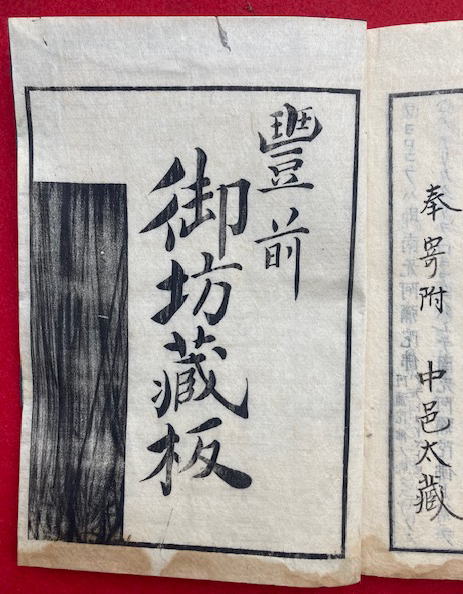 奉寄附 中邑太藏
豐前
御坊藏板